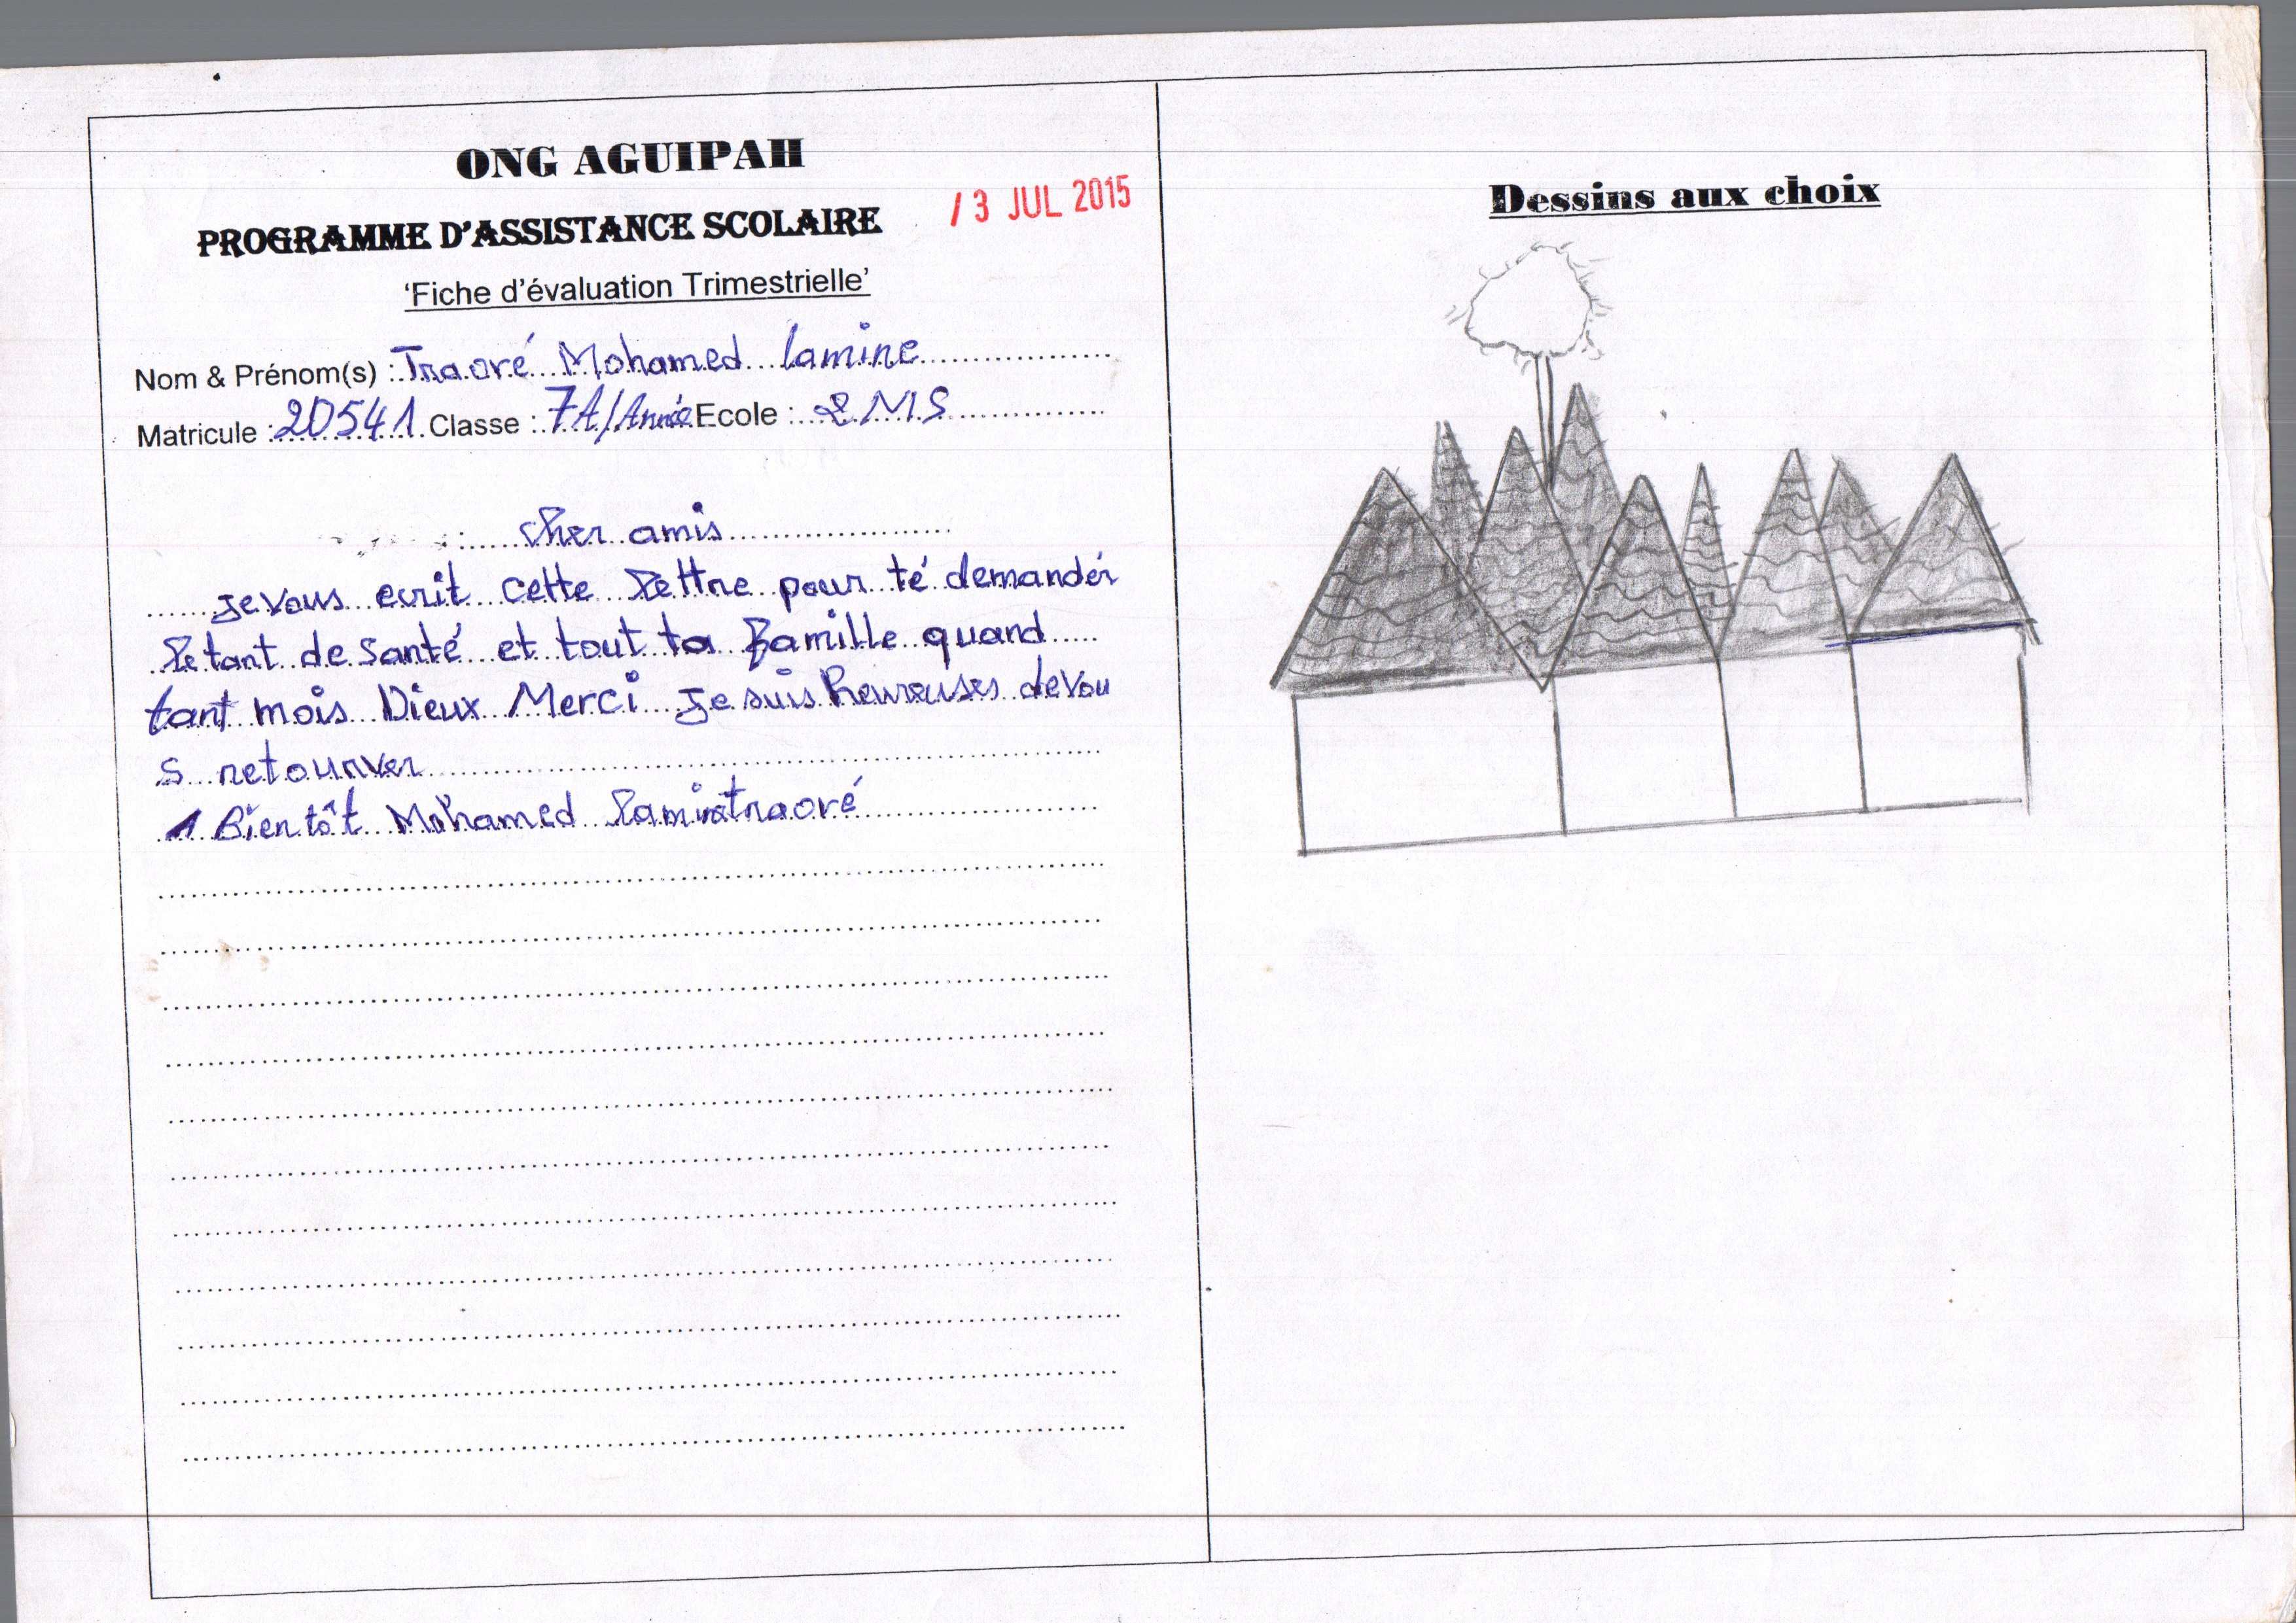 ONG AGUIPAH
PROGRAMME D'ASSISTANCE SCOLAIRE
13 JUL 2015
'Fiche d'évaluation Trimestrielle'
Nom & Prénom(s) : Traoré Mohamed lamine
Matricule : 20541 Classe : 7A/Année Ecole : 2MS
: cher amis
je vous ecrit cette lettre pour té demandér
le tant de santé et tout ta famille quand
tant mois Dieux Merci je suis heureuses devou
s retourver
A Bientôt Mohamed traoré
Dessins aux choix